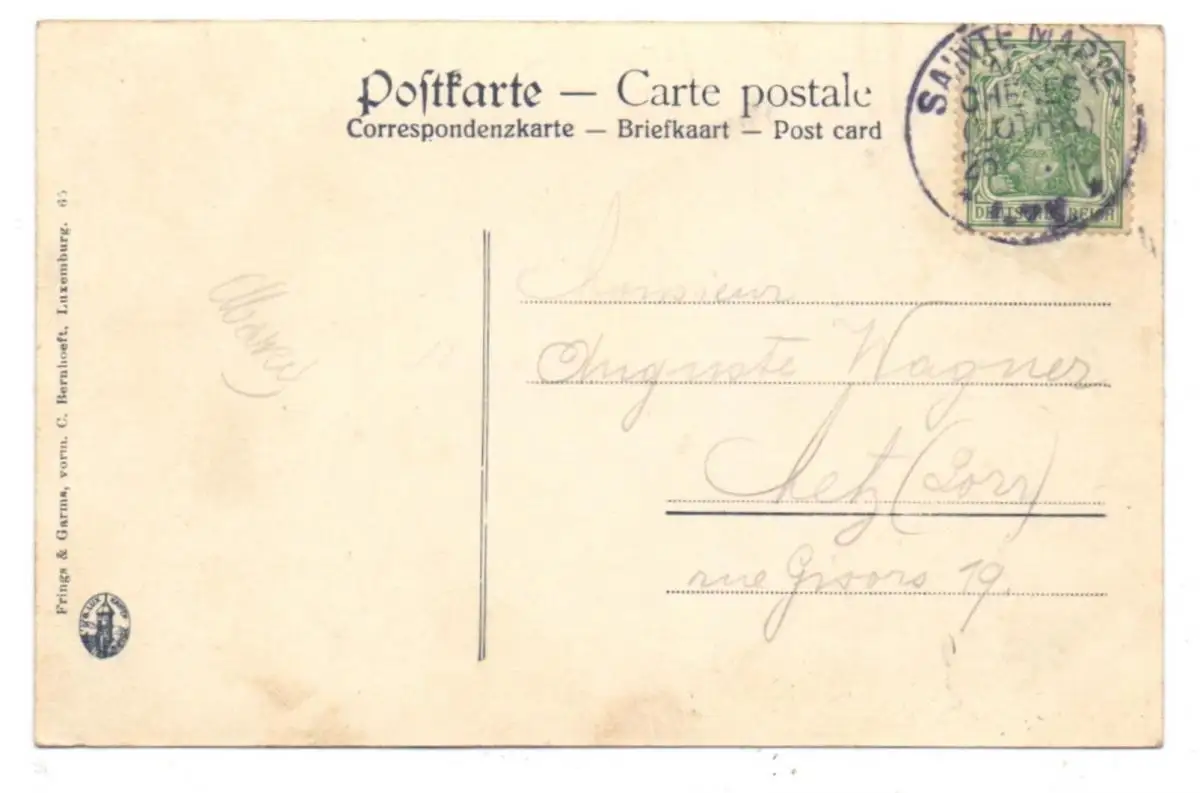 Postkarte — Carte postale
Correspondenzkarte — Briefkaart — Post card
SAINTE MARIE
CHENES
(LOTHR.)
DEUTSCHES REICH
Frings & Garms, vorm. C. Bernhoeft, Luxemburg. 65
Marcel
Monsieur
Auguste Wagner
Metz (Lorr)
rue Gisors 19.